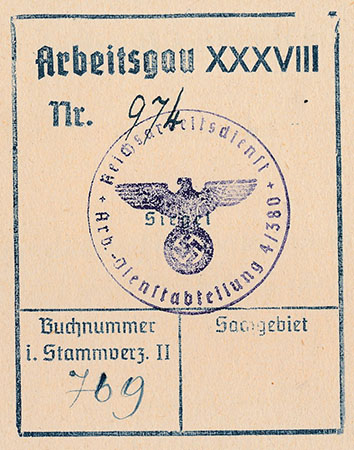 Arbeitsgau XXXVIII
Nr. 974
Reichsarbeitsdienst
Siegel
* Arb.-Dienstabteilung 4/380 *
Buchnummer
i. Stammverz. II
769
Sachgebiet